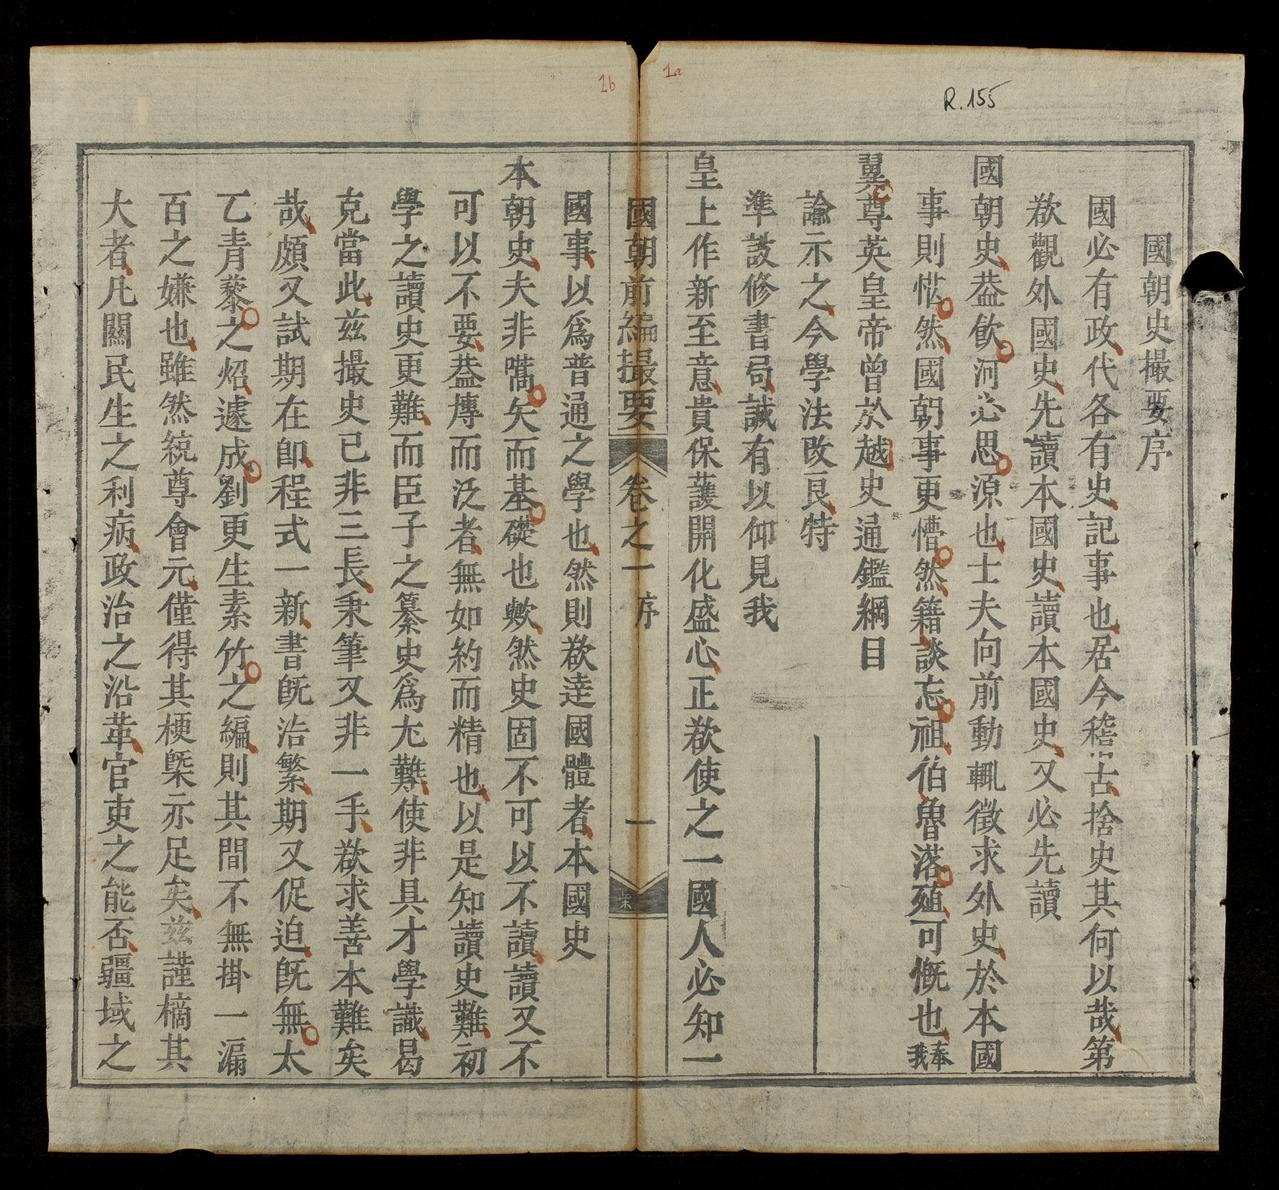 R.155
1a
1b
國朝史撮要序
國必有政代各有史記事也居今稽古捨史其何以哉第
欲觀外國史先讀本國史讀本國史又必先讀
國朝史葢飲河必思源也士夫向前動輒徵求外史於本國
事則恾然國朝事更懵然籍談忘祖伯魯落殖可慨也奉我
翼尊英皇帝曾於越史通鑑綱目
諭示之今學法改良特
準設修書局誠有以仰見我
皇上作新至意貴保護開化盛心正欲使之一國人必知一
國朝前編撮要 卷之一 序 一
國事以爲普通之學也然則欲達國體者本國史
本朝史夫非嚆矢而基礎也歟然史固不可以不讀讀又不
可以不要葢慱而泛者無如約而精也以是知讀史難初
學之讀史更難而臣子之纂史爲尤難使非具才學識曷
克當此茲撮史已非三長秉筆又非一手欲求善本難矣
哉頗又試期在卽程式一新書旣浩繁期又促迫旣無太
乙青藜之炤遽成劉更生素竹之編則其間不無掛一漏
百之嫌也雖然統尊會元僅得其梗槩亦足矣茲謹樀其
大者凡關民生之利病政治之沿革官吏之能否疆域之